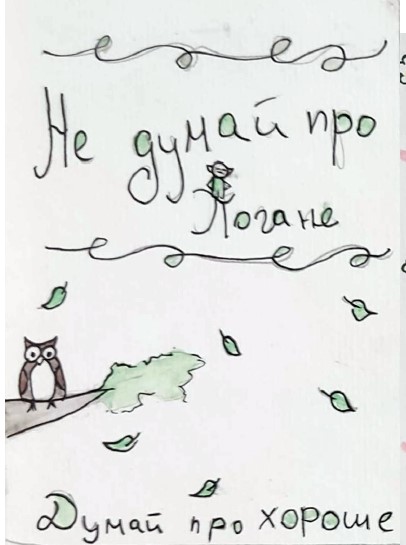 Не думай про
Погане
Думай про хороше